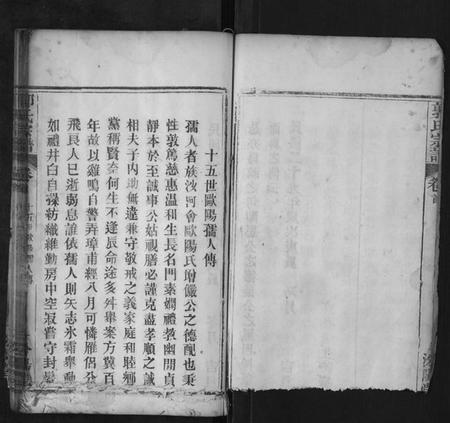 郭氏宗譜
卷首
十五世歐陽孺人傳
孺人者族沙河會歐陽氏增儼公之德配也秉
性敦篤慈惠溫和生長名門素嫻禮教幽閒貞
靜本於至誠事公姑視膳必謹克盡孝順之誠
相夫子內助無違兼守敬戒之義家庭和睦鄉
黨稱賢奈何生不逢辰命途多舛舉案方冀百
年故以雞鳴自警弄璋甫經八月可憐雁侶分
飛良人已逝弱息誰依孺人則矢志冰霜舉動
如禮井臼自操紡織維勤房中空寂嘗守封髮